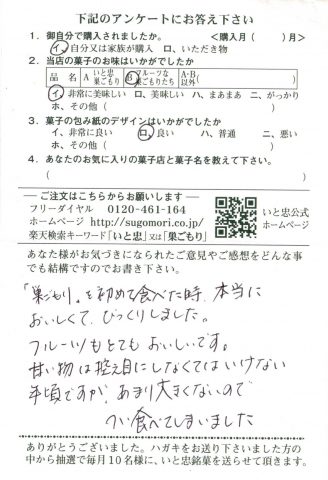 下記のアンケートにお答え下さい
1. 御自分で購入されましたか。 <購入月( )月>
イ、自分又は家族が購入 ロ、いただき物
2. 当店の菓子のお味はいかがでしたか
品 名 A いと忠巣ごもり B フルーツな巣ごもりたち A・B以外
イ、非常に美味しい ロ、美味しい ハ、まあまあ ニ、がっかり
ホ、その他( )
3. 菓子の包み紙のデザインはいかがでしたか
イ、非常に良い ロ、良い ハ、普通 ニ、悪い
ホ、その他( )
4. あなたのお気に入りの菓子店と菓子名を教えて下さい。
( )
ご注文はこちらからお願いします
フリーダイヤル 0120-461-164
ホームページ http://sugomori.co.jp/
楽天検索キーワード「いと忠」又は「巣ごもり」
いと忠公式
ホームページ
あなた様がお気づきになられたご意見やご感想をどんな事
でも結構ですのでお書き下さい。
「巣ごもり」を初めて食べた時、本当に
おいしくて、びっくりしました。
フルーツもとてもおいしいです。
甘い物は控え目にしなくてはいけない
年頃ですが、あまり大きくないので
つい食べてしまいました
ありがとうございました。ハガキをお送り下さいました方の
中から抽選で毎月10名様に、いと忠銘菓を送らせて頂きます。